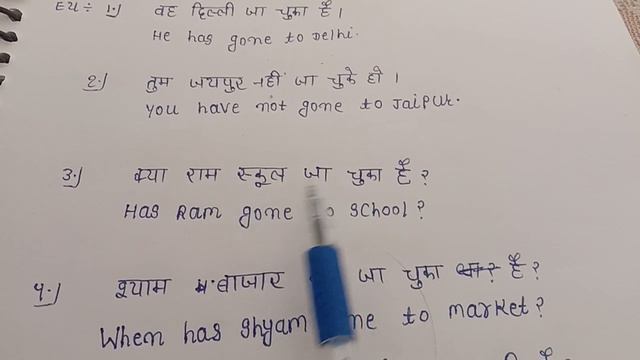 Ex ÷ 1.) वह दिल्ली जा चुका है।
He has gone to Delhi.
2.) तुम जयपुर नहीं जा चुके हो।
You have not gone to Jaipur.
3.) क्या राम स्कूल जा चुका है?
Has Ram gone school?
4.) श्याम बाजार जा चुका है?
When has Shyam to market?